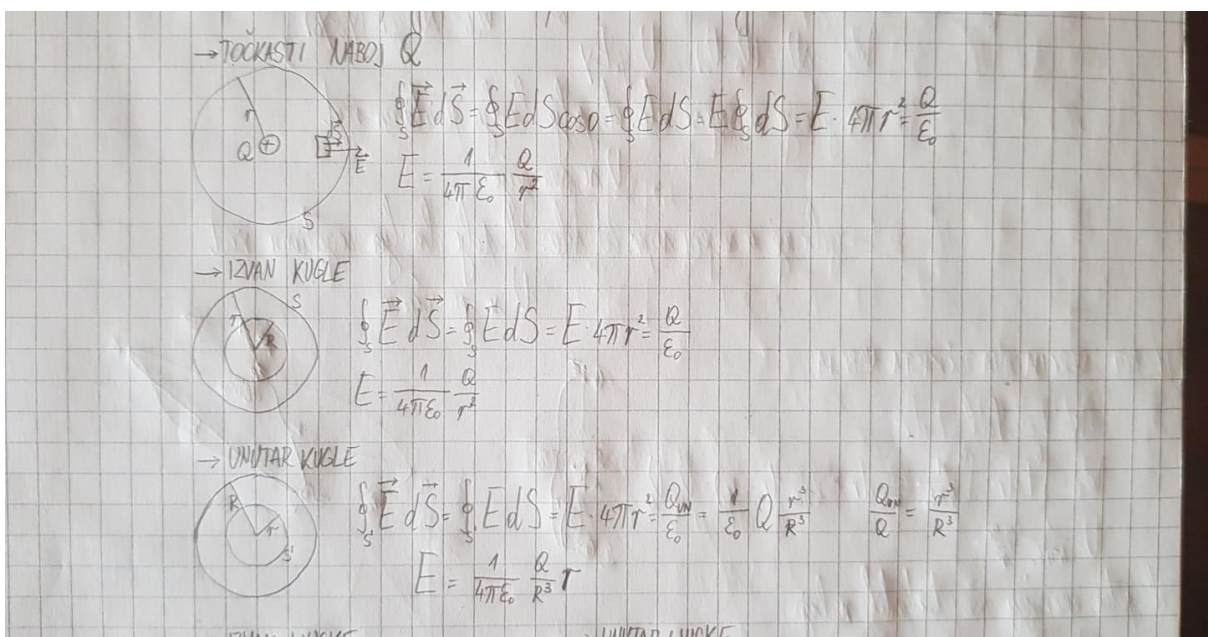 → TOČKASTI NABOJ Q
r
Q ⊕
S⃗
E⃗
S
∮_S E⃗ dS⃗ = ∮_S E dS cos0 = ∮_S E dS = E ∮_S dS = E · 4πr² = Q/ε₀
E = 1/(4πε₀) Q/r²
→ IZVAN KUGLE
S
r
R
∮_S E⃗ dS⃗ = ∮_S E dS = E · 4πr² = Q/ε₀
E = 1/(4πε₀) Q/r²
→ UNUTAR KUGLE
R
r
S'
∮_S' E⃗ dS⃗ = ∮_S E dS = E · 4πr² = Q_UN/ε₀ = 1/ε₀ Q r³/R³ Q_UN/Q = r³/R³
E = 1/(4πε₀) Q/R³ r